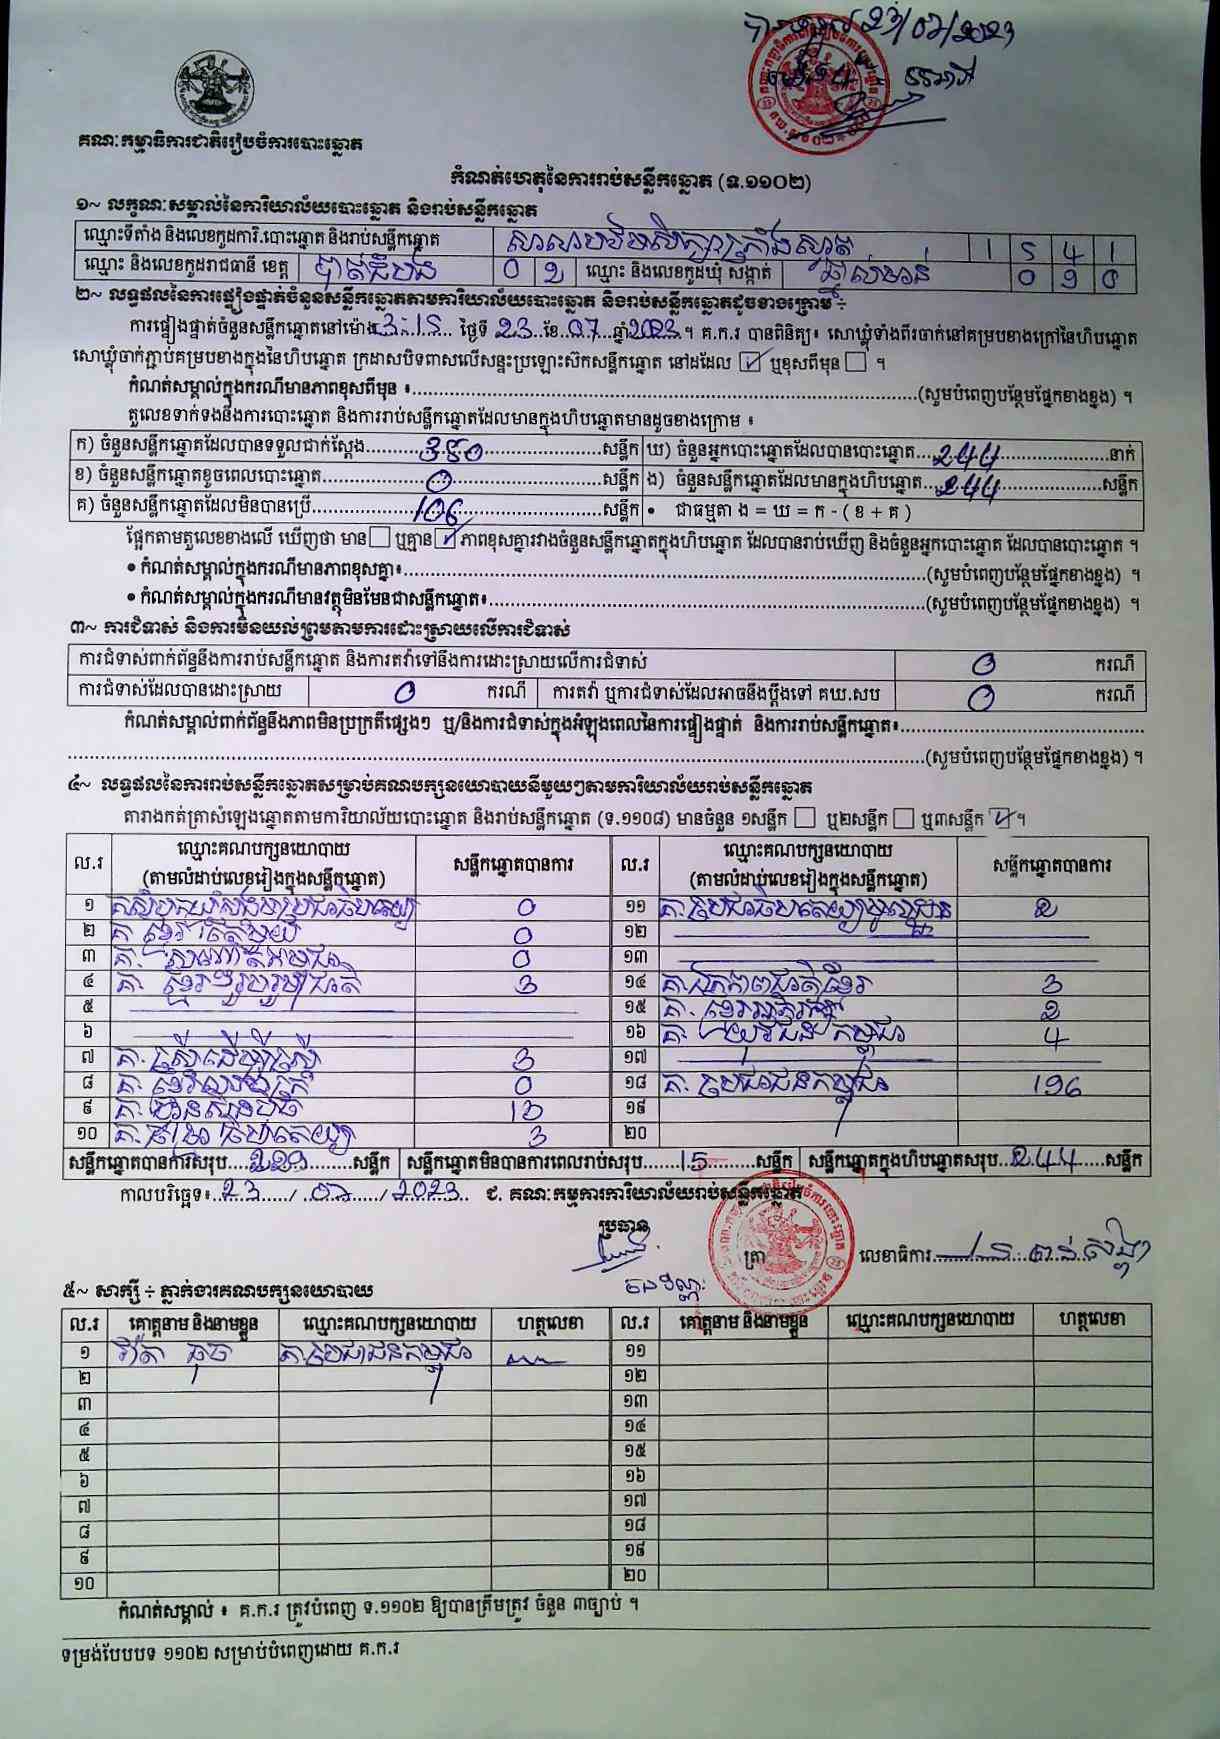 23/07/2023
គណៈកម្មាធិការជាតិរៀបចំការបោះឆ្នោត
កំណត់ហេតុនៃការរាប់សន្លឹកឆ្នោត (ទ.១១០២)
១~ លក្ខណៈសម្គាល់នៃការិយាល័យបោះឆ្នោត និងរាប់សន្លឹកឆ្នោត
ឈ្មោះទីតាំង និងលេខកូដការិ.បោះឆ្នោត និងរាប់សន្លឹកឆ្នោត 1 5 4 1
ឈ្មោះ និងលេខកូដរាជធានី ខេត្ត បាត់ដំបង 0 2 ឈ្មោះ និងលេខកូដឃុំ សង្កាត់
២~ លទ្ធផលនៃការផ្ទៀងផ្ទាត់ចំនួនសន្លឹកឆ្នោតតាមការិយាល័យបោះឆ្នោត និងរាប់សន្លឹកឆ្នោតដូចខាងក្រោម ÷
ការផ្ទៀងផ្ទាត់ចំនួនសន្លឹកឆ្នោតនៅម៉ោង 3:15 ថ្ងៃទី 23 ខែ 07 ឆ្នាំ 2023 ។ គ.ក.រ បានពិនិត្យ៖ សោឃ្លុំទាំងពីរចាក់នៅគម្របខាងក្រៅនៃហិបឆ្នោត
សោឃ្លុំចាក់ភ្ជាប់គម្របខាងក្នុងនៃហិបឆ្នោត ក្រដាសបិទពាសលើសន្ទះប្រឡោះស៊កសន្លឹកឆ្នោត នៅដដែល ☑ ឬខុសពីមុន ☐ ។
កំណត់សម្គាល់ក្នុងករណីមានភាពខុសពីមុន ៖ (សូមបំពេញបន្ថែមផ្នែកខាងខ្នង) ។
តួលេខទាក់ទងនឹងការបោះឆ្នោត និងការរាប់សន្លឹកឆ្នោតដែលមានក្នុងហិបឆ្នោតមានដូចខាងក្រោម ៖
ក) ចំនួនសន្លឹកឆ្នោតដែលបានទទួលជាក់ស្តែង 350 សន្លឹក ឃ) ចំនួនអ្នកបោះឆ្នោតដែលបានបោះឆ្នោត 244 នាក់
ខ) ចំនួនសន្លឹកឆ្នោតខូចពេលបោះឆ្នោត 0 សន្លឹក ង) ចំនួនសន្លឹកឆ្នោតដែលមានក្នុងហិបឆ្នោត 244 សន្លឹក
គ) ចំនួនសន្លឹកឆ្នោតដែលមិនបានប្រើ 106 សន្លឹក • ជាធម្មតា ង = ឃ = ក - ( ខ + គ )
ផ្អែកតាមតួលេខខាងលើ ឃើញថា មាន ☐ ឬគ្មាន ☑ ភាពខុសគ្នារវាងចំនួនសន្លឹកឆ្នោតក្នុងហិបឆ្នោត ដែលបានរាប់ឃើញ និងចំនួនអ្នកបោះឆ្នោត ដែលបានបោះឆ្នោត ។
• កំណត់សម្គាល់ក្នុងករណីមានភាពខុសគ្នា៖ (សូមបំពេញបន្ថែមផ្នែកខាងខ្នង) ។
• កំណត់សម្គាល់ក្នុងករណីមានវត្ថុមិនមែនជាសន្លឹកឆ្នោត៖ (សូមបំពេញបន្ថែមផ្នែកខាងខ្នង) ។
៣~ ការជំទាស់ និងការមិនយល់ព្រមតាមការដោះស្រាយលើការជំទាស់
ការជំទាស់ពាក់ព័ន្ធនឹងការរាប់សន្លឹកឆ្នោត និងការតវ៉ាទៅនឹងការដោះស្រាយលើការជំទាស់ 0 ករណី
ការជំទាស់ដែលបានដោះស្រាយ 0 ករណី ការតវ៉ា ឬការជំទាស់ដែលអាចនឹងប្តឹងទៅ គឃ.សប 0 ករណី
កំណត់សម្គាល់ពាក់ព័ន្ធនឹងភាពមិនប្រក្រតីផ្សេងៗ ឬ/និងការជំទាស់ក្នុងអំឡុងពេលនៃការផ្ទៀងផ្ទាត់ និងការរាប់សន្លឹកឆ្នោត៖
(សូមបំពេញបន្ថែមផ្នែកខាងខ្នង) ។
៤~ លទ្ធផលនៃការរាប់សន្លឹកឆ្នោតសម្រាប់គណបក្សនយោបាយនីមួយៗតាមការិយាល័យរាប់សន្លឹកឆ្នោត
តារាងកត់ត្រាសំឡេងឆ្នោតតាមការិយាល័យបោះឆ្នោត និងរាប់សន្លឹកឆ្នោត (ទ.១១០៨) មានចំនួន ១សន្លឹក ☐ ឬ២សន្លឹក ☐ ឬ៣សន្លឹក ☑ ។
ល.រ ឈ្មោះគណបក្សនយោបាយ (តាមលំដាប់លេខរៀងក្នុងសន្លឹកឆ្នោត) សន្លឹកឆ្នោតបានការ ល.រ ឈ្មោះគណបក្សនយោបាយ (តាមលំដាប់លេខរៀងក្នុងសន្លឹកឆ្នោត) សន្លឹកឆ្នោតបានការ
១ 0 ១១ 2
២ 0 ១២
៣ 0 ១៣
៤ 3 ១៤ គ.ឯកភាពជាតិខ្មែរ 3
៥ ១៥ 2
៦ ១៦ គ. យុវជនកម្ពុជា 4
៧ គ. ស្ត្រីដើម្បីស្ត្រី 3 ១៧
៨ 0 ១៨ គ. ប្រជាជនកម្ពុជា 196
៩ 13 ១៩
១០ 3 ២០
សន្លឹកឆ្នោតបានការសរុប 229 សន្លឹក សន្លឹកឆ្នោតមិនបានការពេលរាប់សរុប 15 សន្លឹក សន្លឹកឆ្នោតក្នុងហិបឆ្នោតសរុប 244 សន្លឹក
កាលបរិច្ឆេទ៖ 23 / 07 / 2023 ជ. គណៈកម្មការការិយាល័យរាប់សន្លឹកឆ្នោត
ប្រធាន
ត្រា លេខាធិការ
៥~ សាក្សី ÷ ភ្នាក់ងារគណបក្សនយោបាយ
ល.រ គោត្តនាម និងនាមខ្លួន ឈ្មោះគណបក្សនយោបាយ ហត្ថលេខា ល.រ គោត្តនាម និងនាមខ្លួន ឈ្មោះគណបក្សនយោបាយ ហត្ថលេខា
១ គ.ប្រជាជនកម្ពុជា ១១
២ ១២
៣ ១៣
៤ ១៤
៥ ១៥
៦ ១៦
៧ ១៧
៨ ១៨
៩ ១៩
១០ ២០
កំណត់សម្គាល់ ៖ គ.ក.រ ត្រូវបំពេញ ទ.១១០២ ឱ្យបានត្រឹមត្រូវ ចំនួន ៣ច្បាប់ ។
ទម្រង់បែបបទ ១១០២ សម្រាប់បំពេញដោយ គ.ក.រ